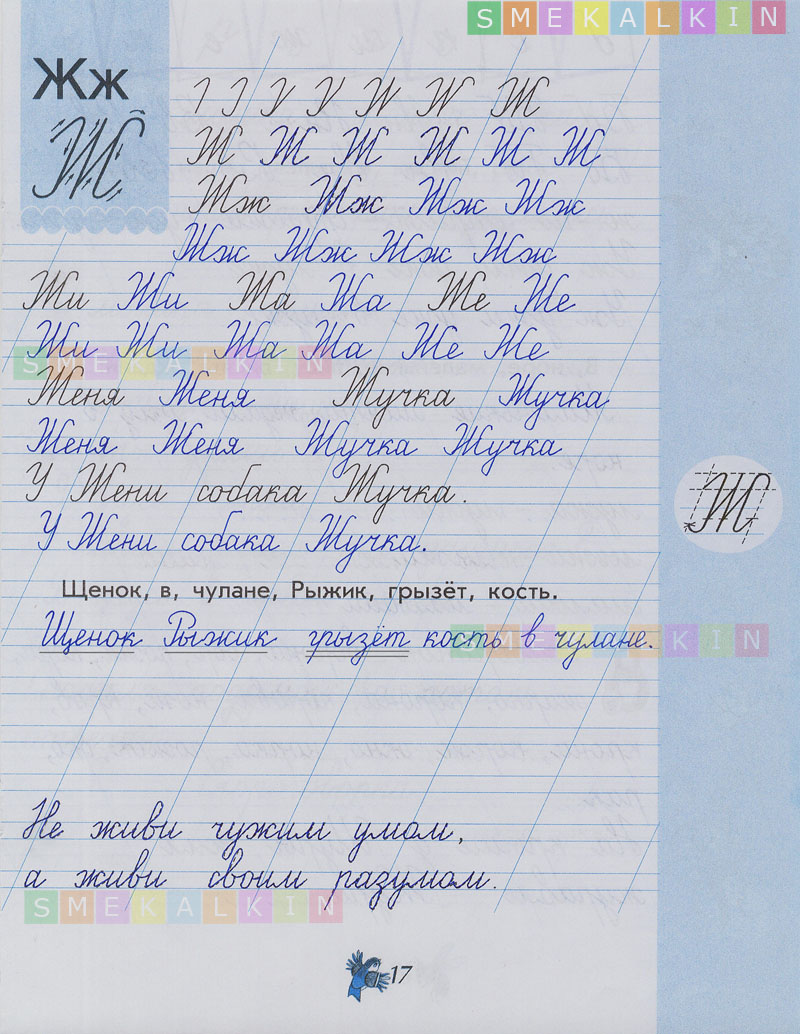 SMEKALKIN
Жж
Ж
Ж
Ж Ж Ж Ж Ж Ж
Жж Жж Жж Жж
Жж Жж Жж Жж
Жи Жи Жа Жа Же Же
Жи Жи Жа Жа Же Же
SMEKALKIN
Женя Женя Жучка Жучка
Женя Женя Жучка Жучка
У Жени собака Жучка.
Ж
У Жени собака Жучка.
Щенок, в, чулане, Рыжик, грызёт, кость.
Щенок Рыжик грызёт кость в чулане.
SMEKALKIN
Не живи чужим умом,
а живи своим разумом.
SMEKALKIN
17